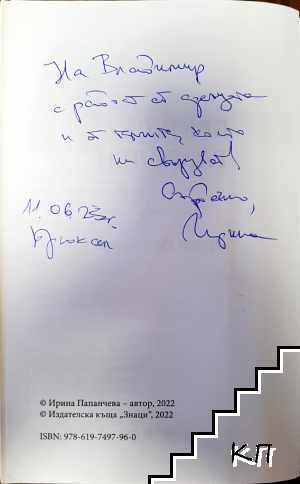 На Владимир
с радост от срещата
и от книгите, които
ни свързват!
Сърдечно,
11.06.23г. Ирина
Брюксел
© Ирина Папанчева – автор, 2022
© Издателска къща „Знаци“, 2022
ISBN: 978-619-7497-96-0
К.П